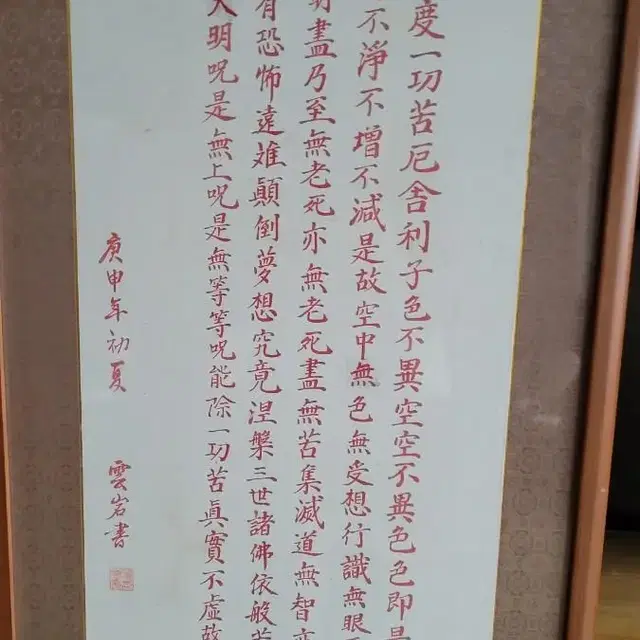 度一切苦厄舍利子色不異空空不異色色即是
不淨不增不減是故空中無色無受想行識無眼
明盡乃至無老死亦無老死盡無苦集滅道無智亦
有恐怖遠難顛倒夢想究竟涅槃三世諸佛依般若
大明呪是無上呪是無等等呪能除一切苦眞實不虛故
庚申年初夏 雲岩書